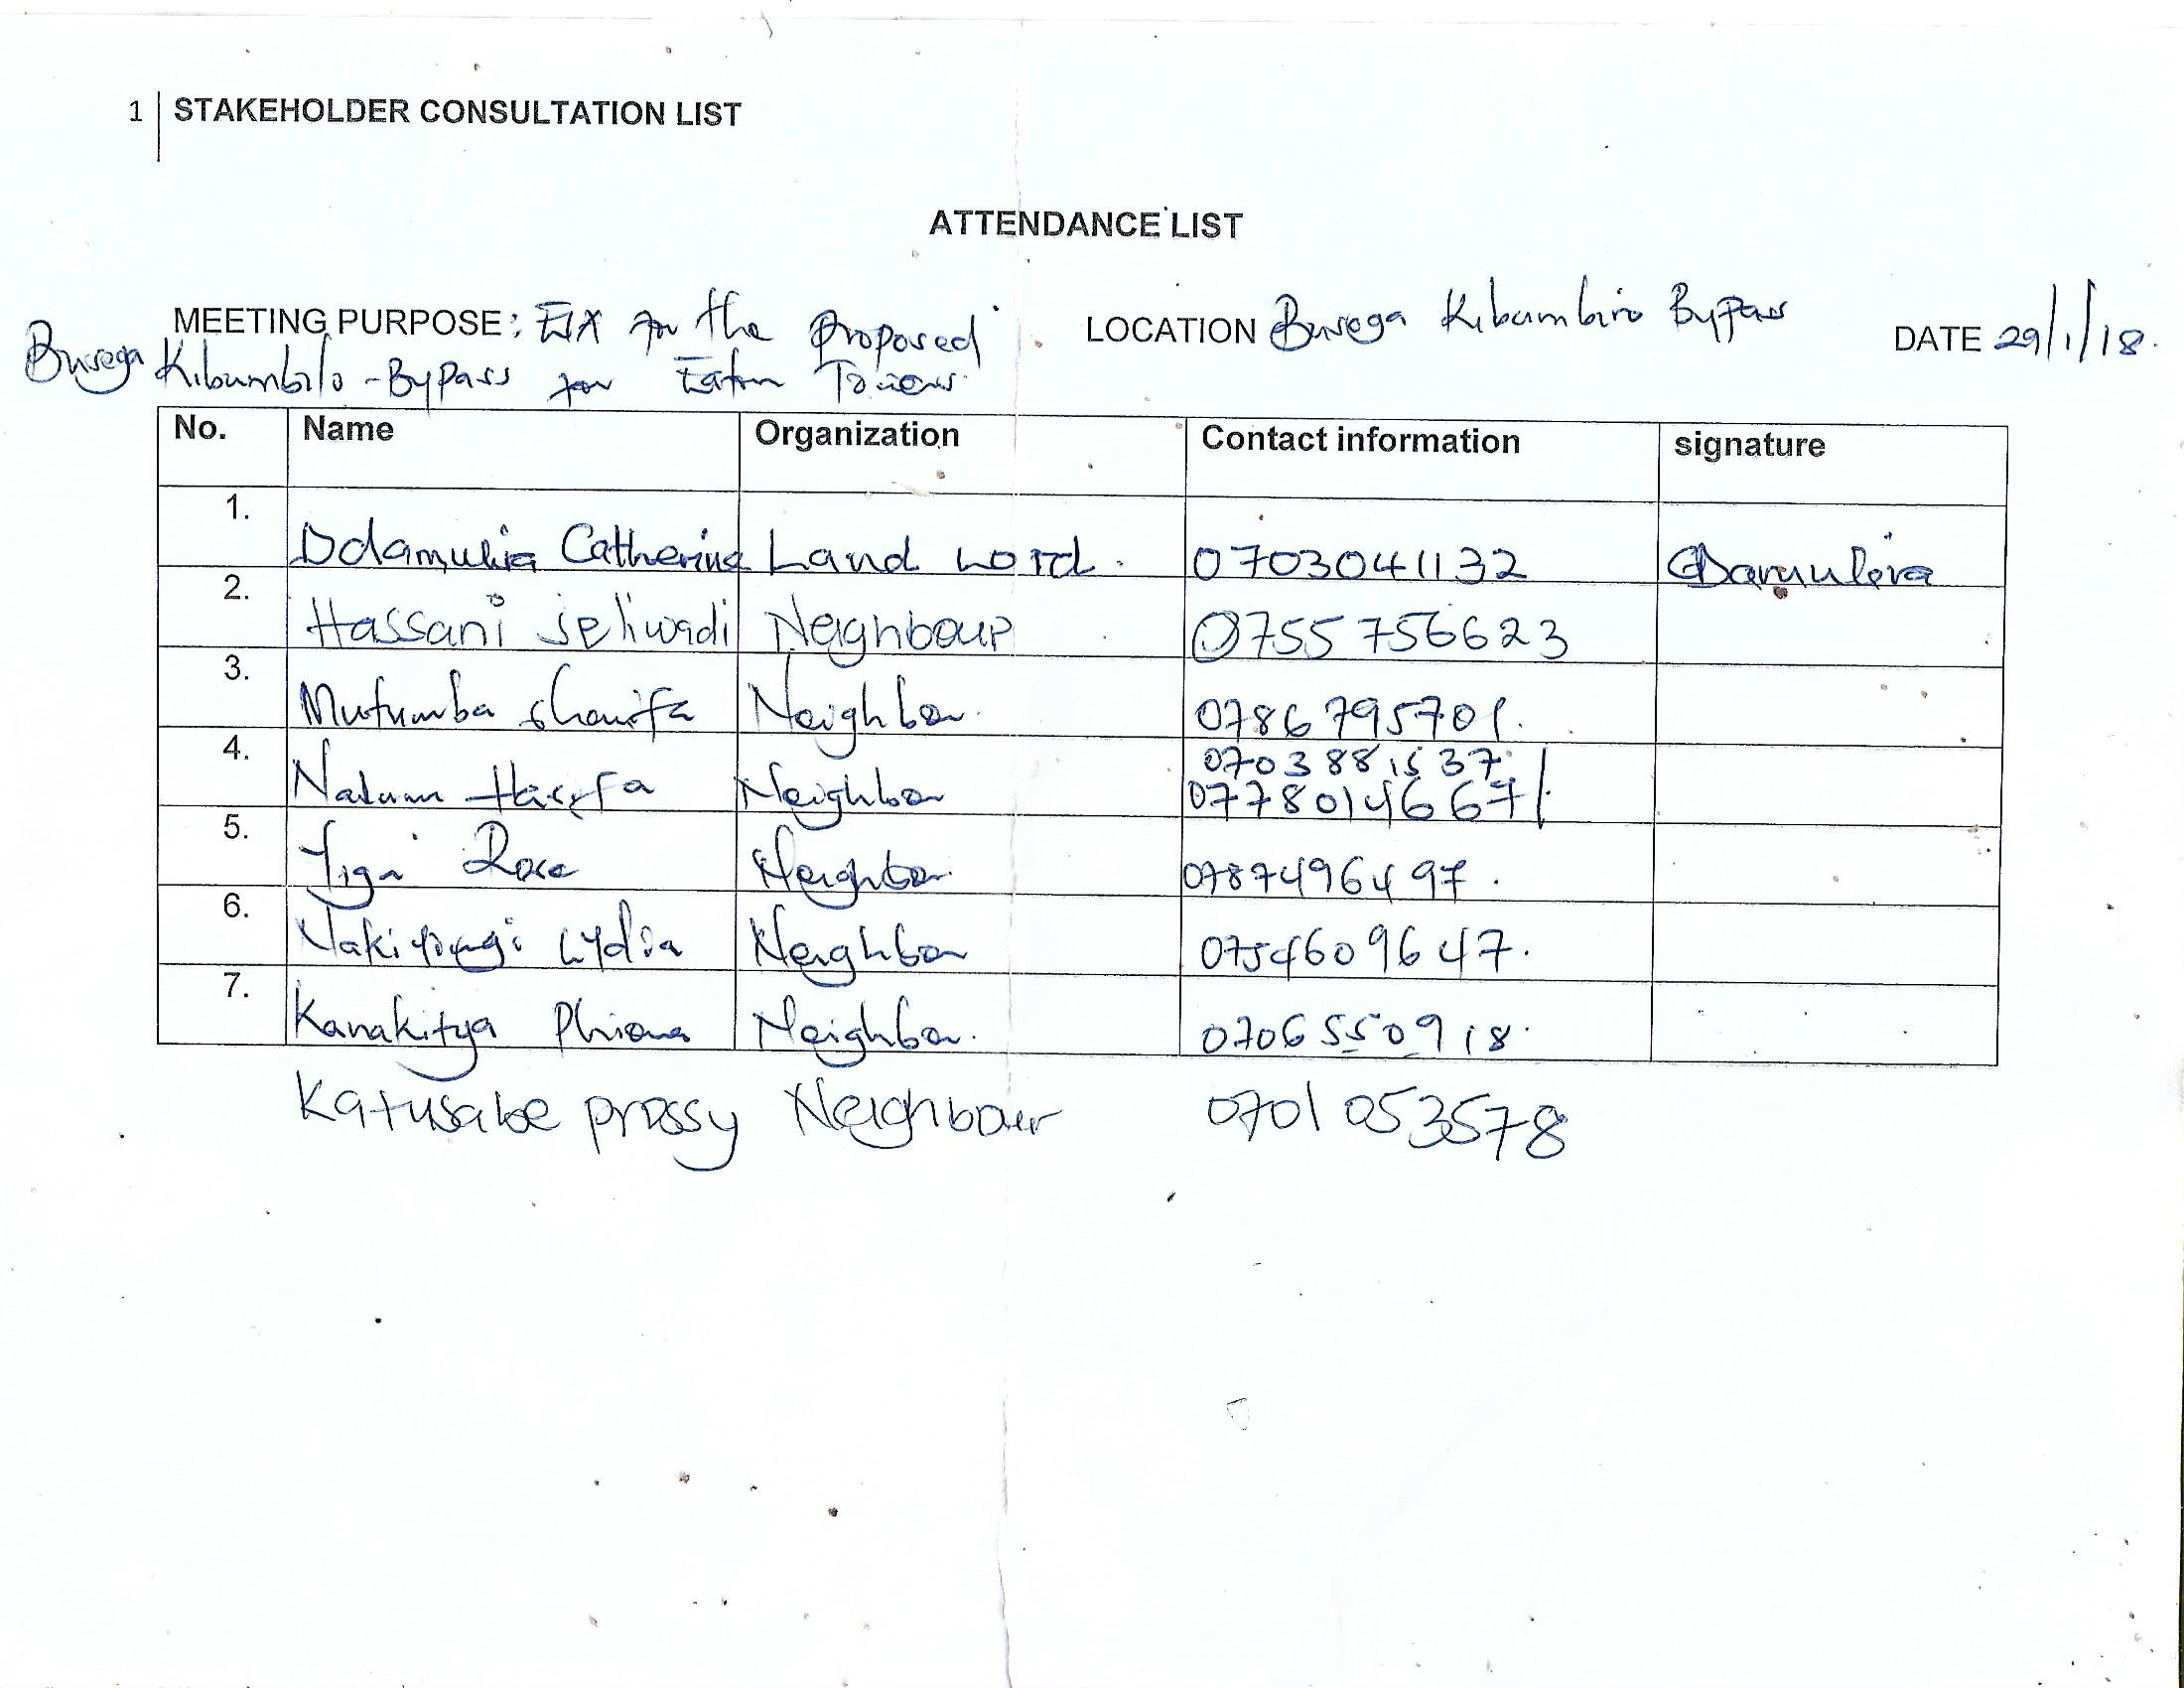 1 STAKEHOLDER CONSULTATION LIST
ATTENDANCE LIST
MEETING PURPOSE: the Proposed LOCATION Busega Kibumbiro Bypass DATE 29/1/18.
Busega Kibumbilo-Bypass for Eaton Towers
No. Name Organization Contact information signature
1. Ddamulira Catherine Land Lord. 0703041132 Damulira
2. Hassani Neighbour 0755756623
3. Mutumba Sharifa Neighbor. 0786795701.
4. Hasifa Neighbor 0703881537
0778014667
5. Jiga Rose Neighbor. 0787496497.
6. Lydia Neighbor 0754609647.
7. Kanakitya Phiona Neighbor. 0706550918.
Katusabe prossy Neighbour 0701053578